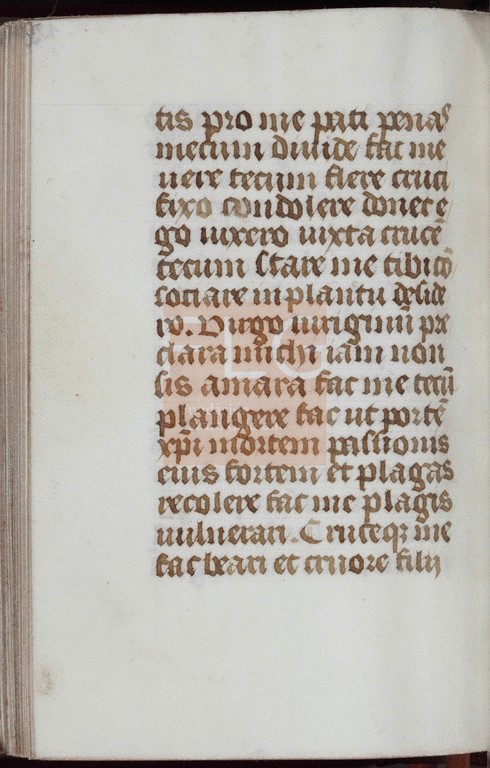 tis pro me pati penas
mecum diuide fac me
uere tecum flere cruci
fixo condolere donec e
go uixero iuxta crucē
tecum stare me tibi cō
sociare in planctu deside
ro. Virgo uirginū pre
clara michi iam non
sis amara fac me tecū
plangere fac ut portē
xp̄i mortem passionis
eius sortem et plagas
recolere fac me plagis
uulnerari. Cruceqꝫ me
fac beari et cruore filij